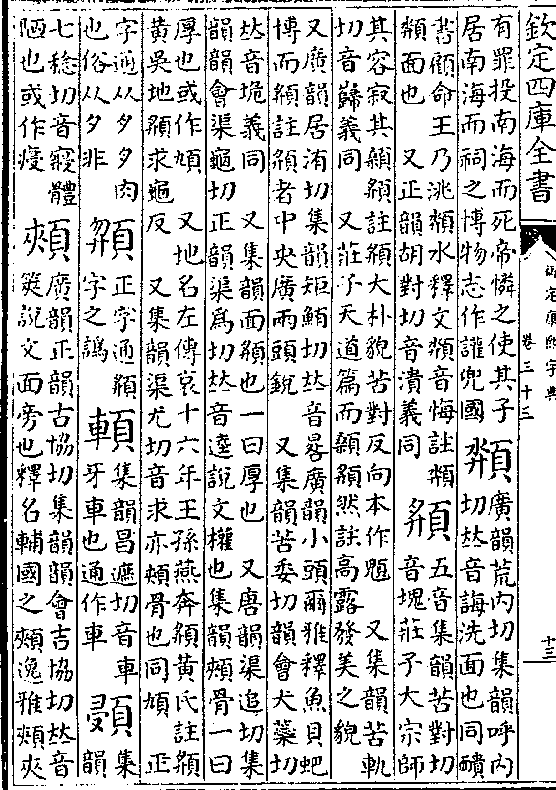 欽定四庫全書
御定康熙字典
卷三十三
十三
有罪投南海而死帝憐之使其子
居南海而祠之博物志作讙兜國
頮
廣韻荒内切集韻呼内
切𠀤音誨洗面也同靧
書顧命王乃洮頮水釋文頮音悔註頮
頮面也 又正韻胡對切音潰義同
頯
五音集韻苦對切
音塊莊子大宗師
其容寂其顙頯註頯大朴貌苦對反向本作䫥 又集韻苦軌
切音巋義同 又莊子天道篇而顙頯然註高露發美之貌
又廣韻居洧切集韻矩鮪切𠀤音晷廣韻小頭爾雅釋魚貝蚆
博而頯註頯者中央廣兩頭銳 又集韻苦委切韻會犬蘂切
𠀤音跪義同 又集韻面顴也一曰厚也 又唐韻渠追切集
韻韻會渠龜切正韻渠爲切𠀤音逵說文權也集韻頰骨一曰
厚也或作頄 又地名左傳哀十六年王孫燕奔頯黃氏註頯
黃吳地頯求龜反 又集韻渠尤切音求亦頰骨也同頄 正
字通从夕夕肉
也俗从夕非
正字通頯
字之譌
集韻昌遮切音車
牙車也通作車
集
韻
七稔切音寢體
陋也或作㾛
頰
廣韻正韻古協切集韻韻會吉協切𠀤音
筴說文面旁也釋名輔國之頰逸雅頰夾